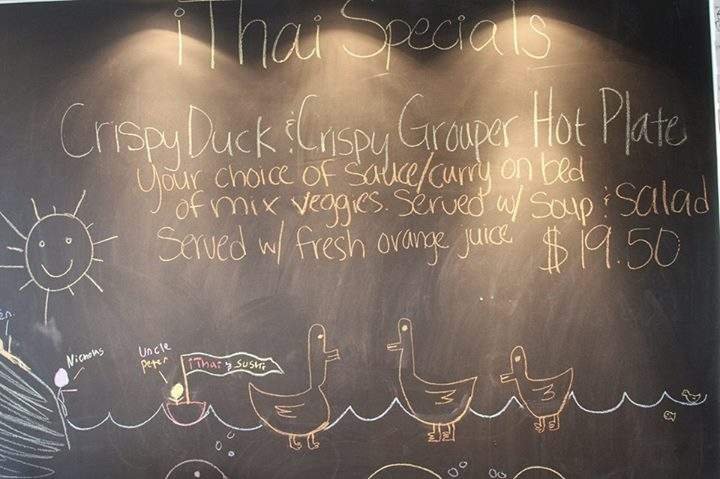 iThai Specials
Crispy Duck & Crispy Grouper Hot Plate
Your choice of sauce/curry on bed
of mix veggies. Served w/ Soup & Salad
Served w/ fresh orange juice $19.50
Nicholas
Uncle
Peter
iThai & Sushi